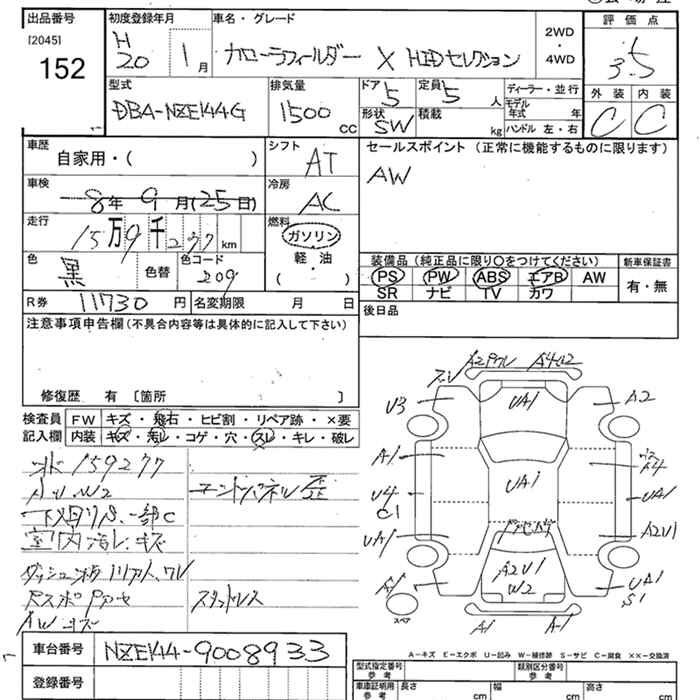 出品番号 初度登録年月 車名・グレード 評価点
[2045] H 20 1月 カローラフィールダー X HIDセレクション 2WD・4WD 3.5
152
型式 排気量 ドア 5 定員 5 人 ディーラー・並行 外装 内装
DBA-NZE144G 1500 CC 形状 SW 積載 kg モデル年式 年 C C
ハンドル 左・右
車歴 自家用・( ) シフト AT セールスポイント (正常に機能するものに限ります)
車検 8年 9月(25日) 冷房 AC AW
走行 15万9千277km 燃料 ガソリン
色 黒 色替 色コード 209 軽・油 ( ・ )
装備品 (純正品に限り○をつけてください) 新車保証書
PS PW ABS エアB AW 有・無
SR ナビ TV カワ
R券 11730円 名変期限 月 日 後日品
注意事項申告欄 (不具合内容等は具体的に記入して下さい)
修復歴 有 [箇所 ]
検査員 FW キズ・飛石・ヒビ割・リペア跡・×要
記入欄 内装 キズ・汚レ・コゲ・穴・スレ・キレ・破レ
159277
W2 エンドパネル歪
下廻りS、一部C
室内汚レ・キズ
スタッドレス
AWキズ
A4U2
U3 UA1 A2
A1
U4 UA1 UA1
C1
UA1 A2U1
A1 A2U1 UA1
W2 S1
スペア A1 A-1
A-キズ E-エクボ U-凹み W-補修跡 S-サビ C-腐食 ××-交換済
車台番号 NZE144-9008933
登録番号
型式指定番号 参考 類別区分番号 参考
車庫証明用 参考 長さ cm 幅 cm 高さ cm